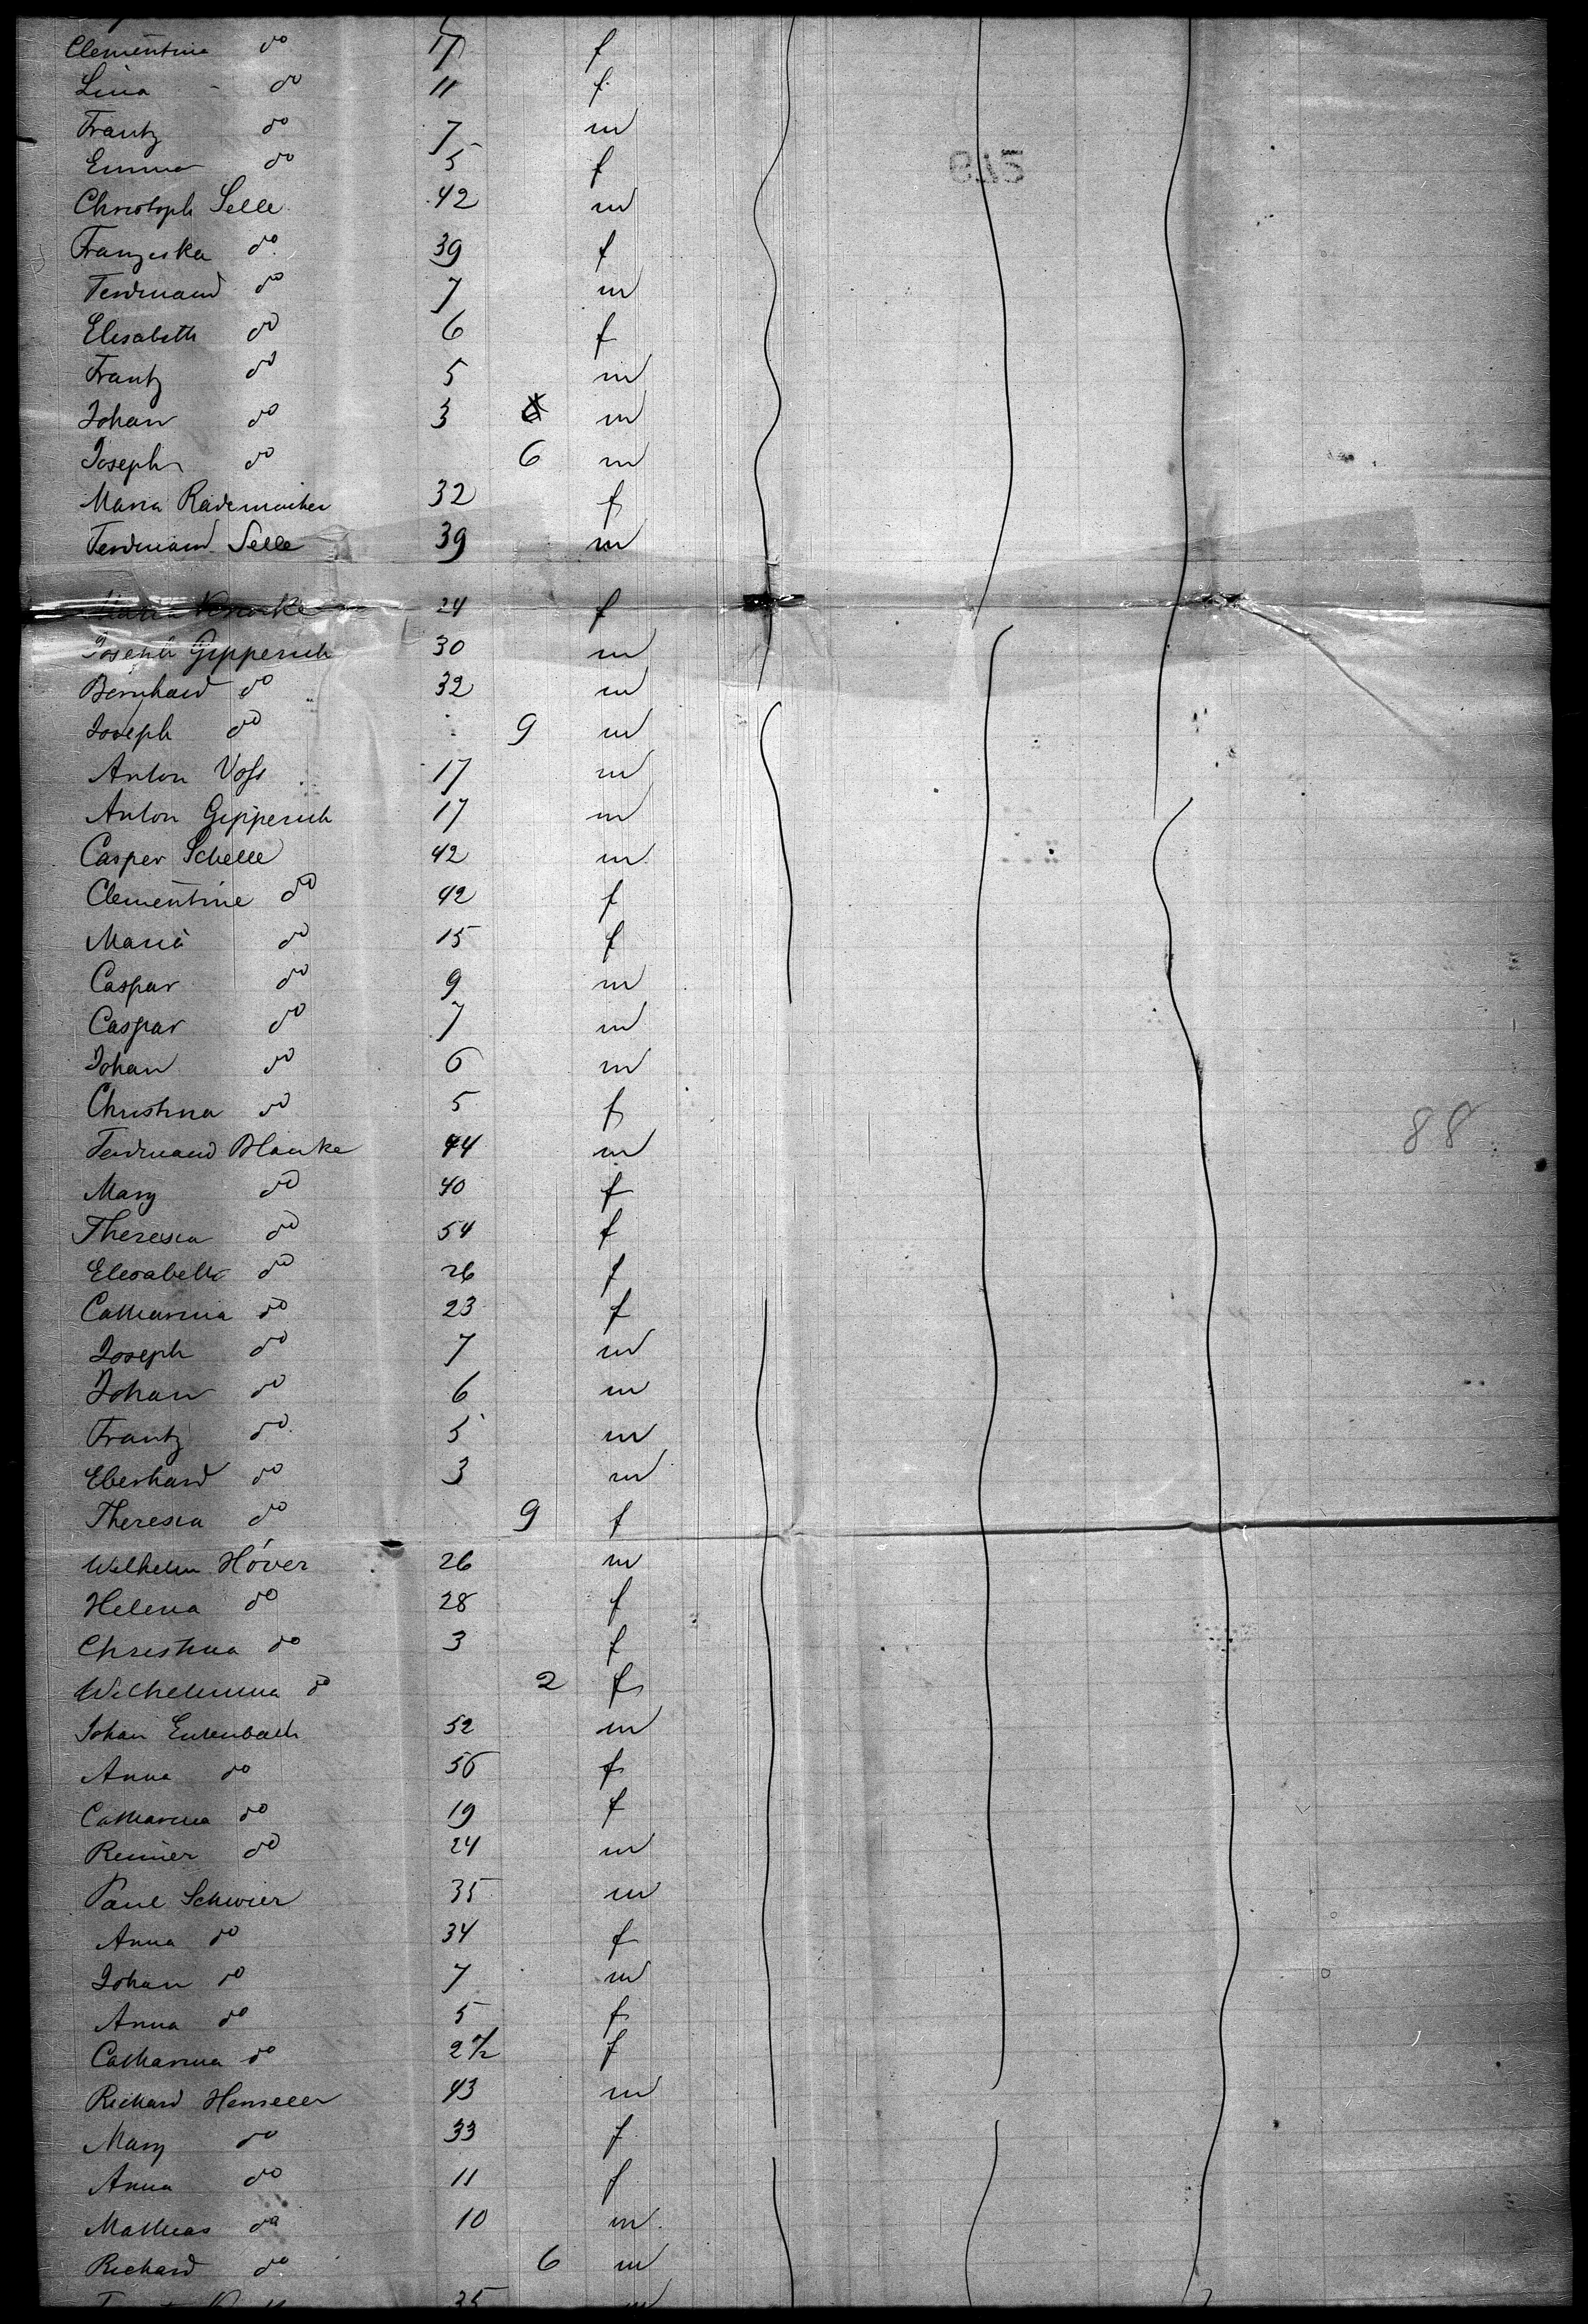 Clementina do 17 f
Lina do 11 f
Frantz do 7 m
Emma do 5 f
Christoph Selle 42 m
Franziska do 39 f
Ferdinand do 7 m
Elisabeth do 6 f
Frantz do 5 m
Johan do 3 m
Joseph do 6 m
Maria Rademacher 32 f
Ferdinand Selle 39 m
Maria 24 f
Joseph Gipperich 30 m
Bernhard do 32 m
Joseph do 9 m
Anton Voss 17 m
Anton Gipperich 17 m
Casper Schelle 42 m
Clementine do 42 f
Maria do 15 f
Caspar do 9 m
Caspar do 7 m
Johan do 6 m
Christina do 5 f
Ferdinand Hanke 44 m
88
Mary do 40 f
Theresia do 54 f
Elisabeth do 26 f
Catharina do 23 f
Joseph do 7 m
Johan do 6 m
Frantz do 5 m
Eberhard do 3 m
Theresia do 9 f
Wilhelm Höver 26 m
Helena do 28 f
Christina do 3 f
Wilhelmina do 2 f
Johan Eulenbach 52 m
Anna do 56 f
Catharina do 19 f
Reinier do 24 m
Paul Schwier 35 m
Anna do 34 f
Johan do 7 m
Anna do 5 f
Catharina do 2 1/2 f
Richard Henseler 43 m
Mary do 33 f
Anna do 11 f
Mathias do 10 m
Richard do 6 m
35 m